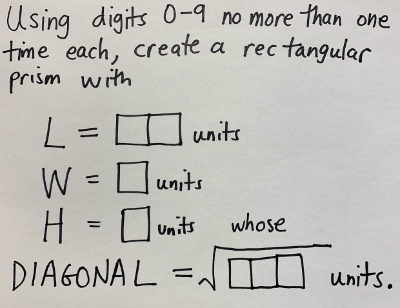 Using digits 0-9 no more than one
time each, create a rectangular
prism with
L = □□ units
W = □ units
H = □ units whose
DIAGONAL = √□□□ units.